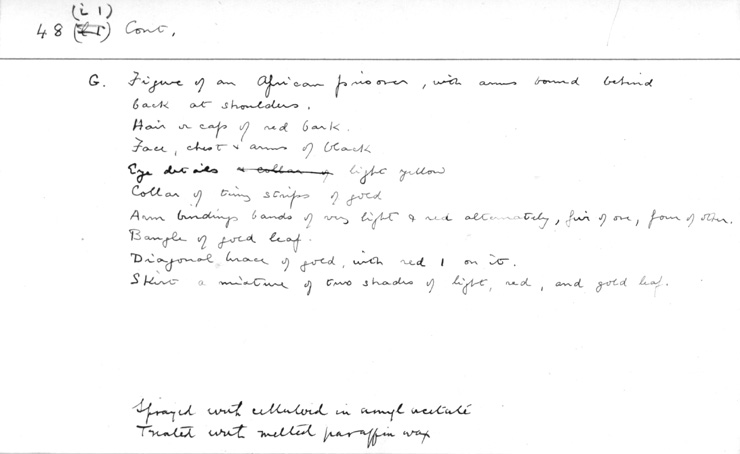 (i 1)
48 Cont.
G. Figure of an African prisoner, with arms bound behind
back at shoulders.
Hair or cap of red bark.
Face, chest & arms of black
Eye details & collar of light yellow
Collar of tiny strips of gold
Arm bindings bands of very light & red alternately, five of one, four of other.
Bangle of gold leaf.
Diagonal brace of gold, with red 1 on it.
Skirt a mixture of two shades of light, red, and gold leaf.
Sprayed with celluloid in amyl acetate
Treated with melted paraffin wax